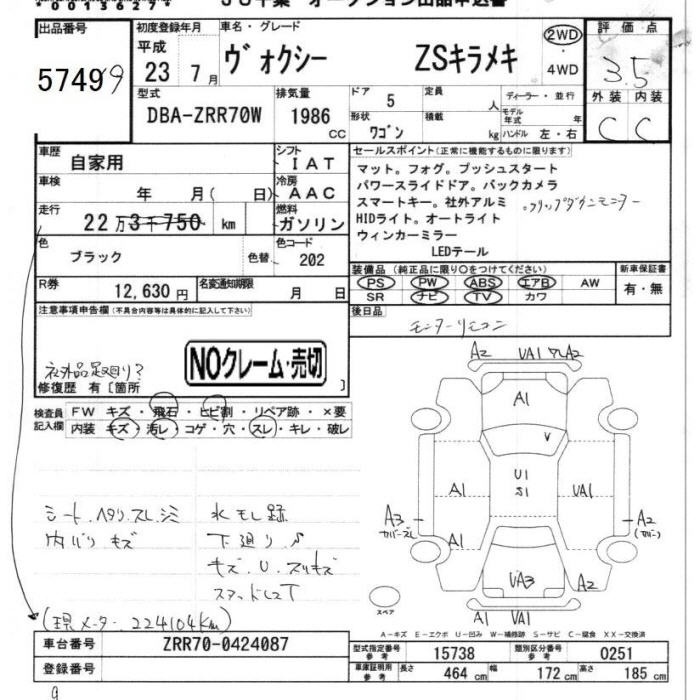 00136274
JU千葉 オークション出品申込書
出品番号
57499
初度登録年月
平成
23 7月
車名・グレード
ヴォクシー ZSキラメキ
2WD
・
4WD
評価点
3.5
外装 内装
C C
型式
DBA-ZRR70W
排気量
1986
CC
ドア 5
形状
ワゴン
定員
人
積載
kg
ディーラー・並行
モデル年式 年
ハンドル 左・右
車歴
自家用
シフト
IAT
車検
年 月( 日)
冷房
AAC
走行
22万3千750 km
燃料
ガソリン
色
ブラック
色替
色コード
202
R券
12,630円
名変通知期限
月 日
セールスポイント(正常に機能するものに限ります)
マット。フォグ。プッシュスタート
パワースライドドア。バックカメラ
スマートキー。社外アルミ 。フリップダウンモニター
HIDライト。オートライト
ウィンカーミラー
LEDテール
装備品(純正品に限り○をつけてください)
PS PW ABS エアB AW
SR ナビ TV カワ
新車保証書
有・無
後日品
モニターリモコン
注意事項申告欄(不具合内容等は具体的に記入して下さい)
社外品足廻り?
NOクレーム・売切
修復歴 有〔箇所 〕
検査員記入欄
FW キズ・飛石・ヒビ割・リペア跡・×要
内装 キズ・汚レ・コゲ・穴・スレ・キレ・破レ
シート、ヘタリ、スレ、シミ
内バリ キズ
水モレ跡
下廻り
キズ、U、スリキズ
(現メーター、224104Km)
A2 VA1 A2
A1
V
U1
S1
A1 VA1
A3
カバースレ
A1
A2
(カバー)
UA3 A2
A1 VA1
スペア
A-キズ E-エクボ U-凹み W-補修跡 S-サビ C-腐食 XX-交換済
車台番号
ZRR70-0424087
登録番号
型式指定番号 参考
15738
類別区分番号 参考
0251
車庫証明用 参考
長さ 464 cm 幅 172 cm 高さ 185 cm
9